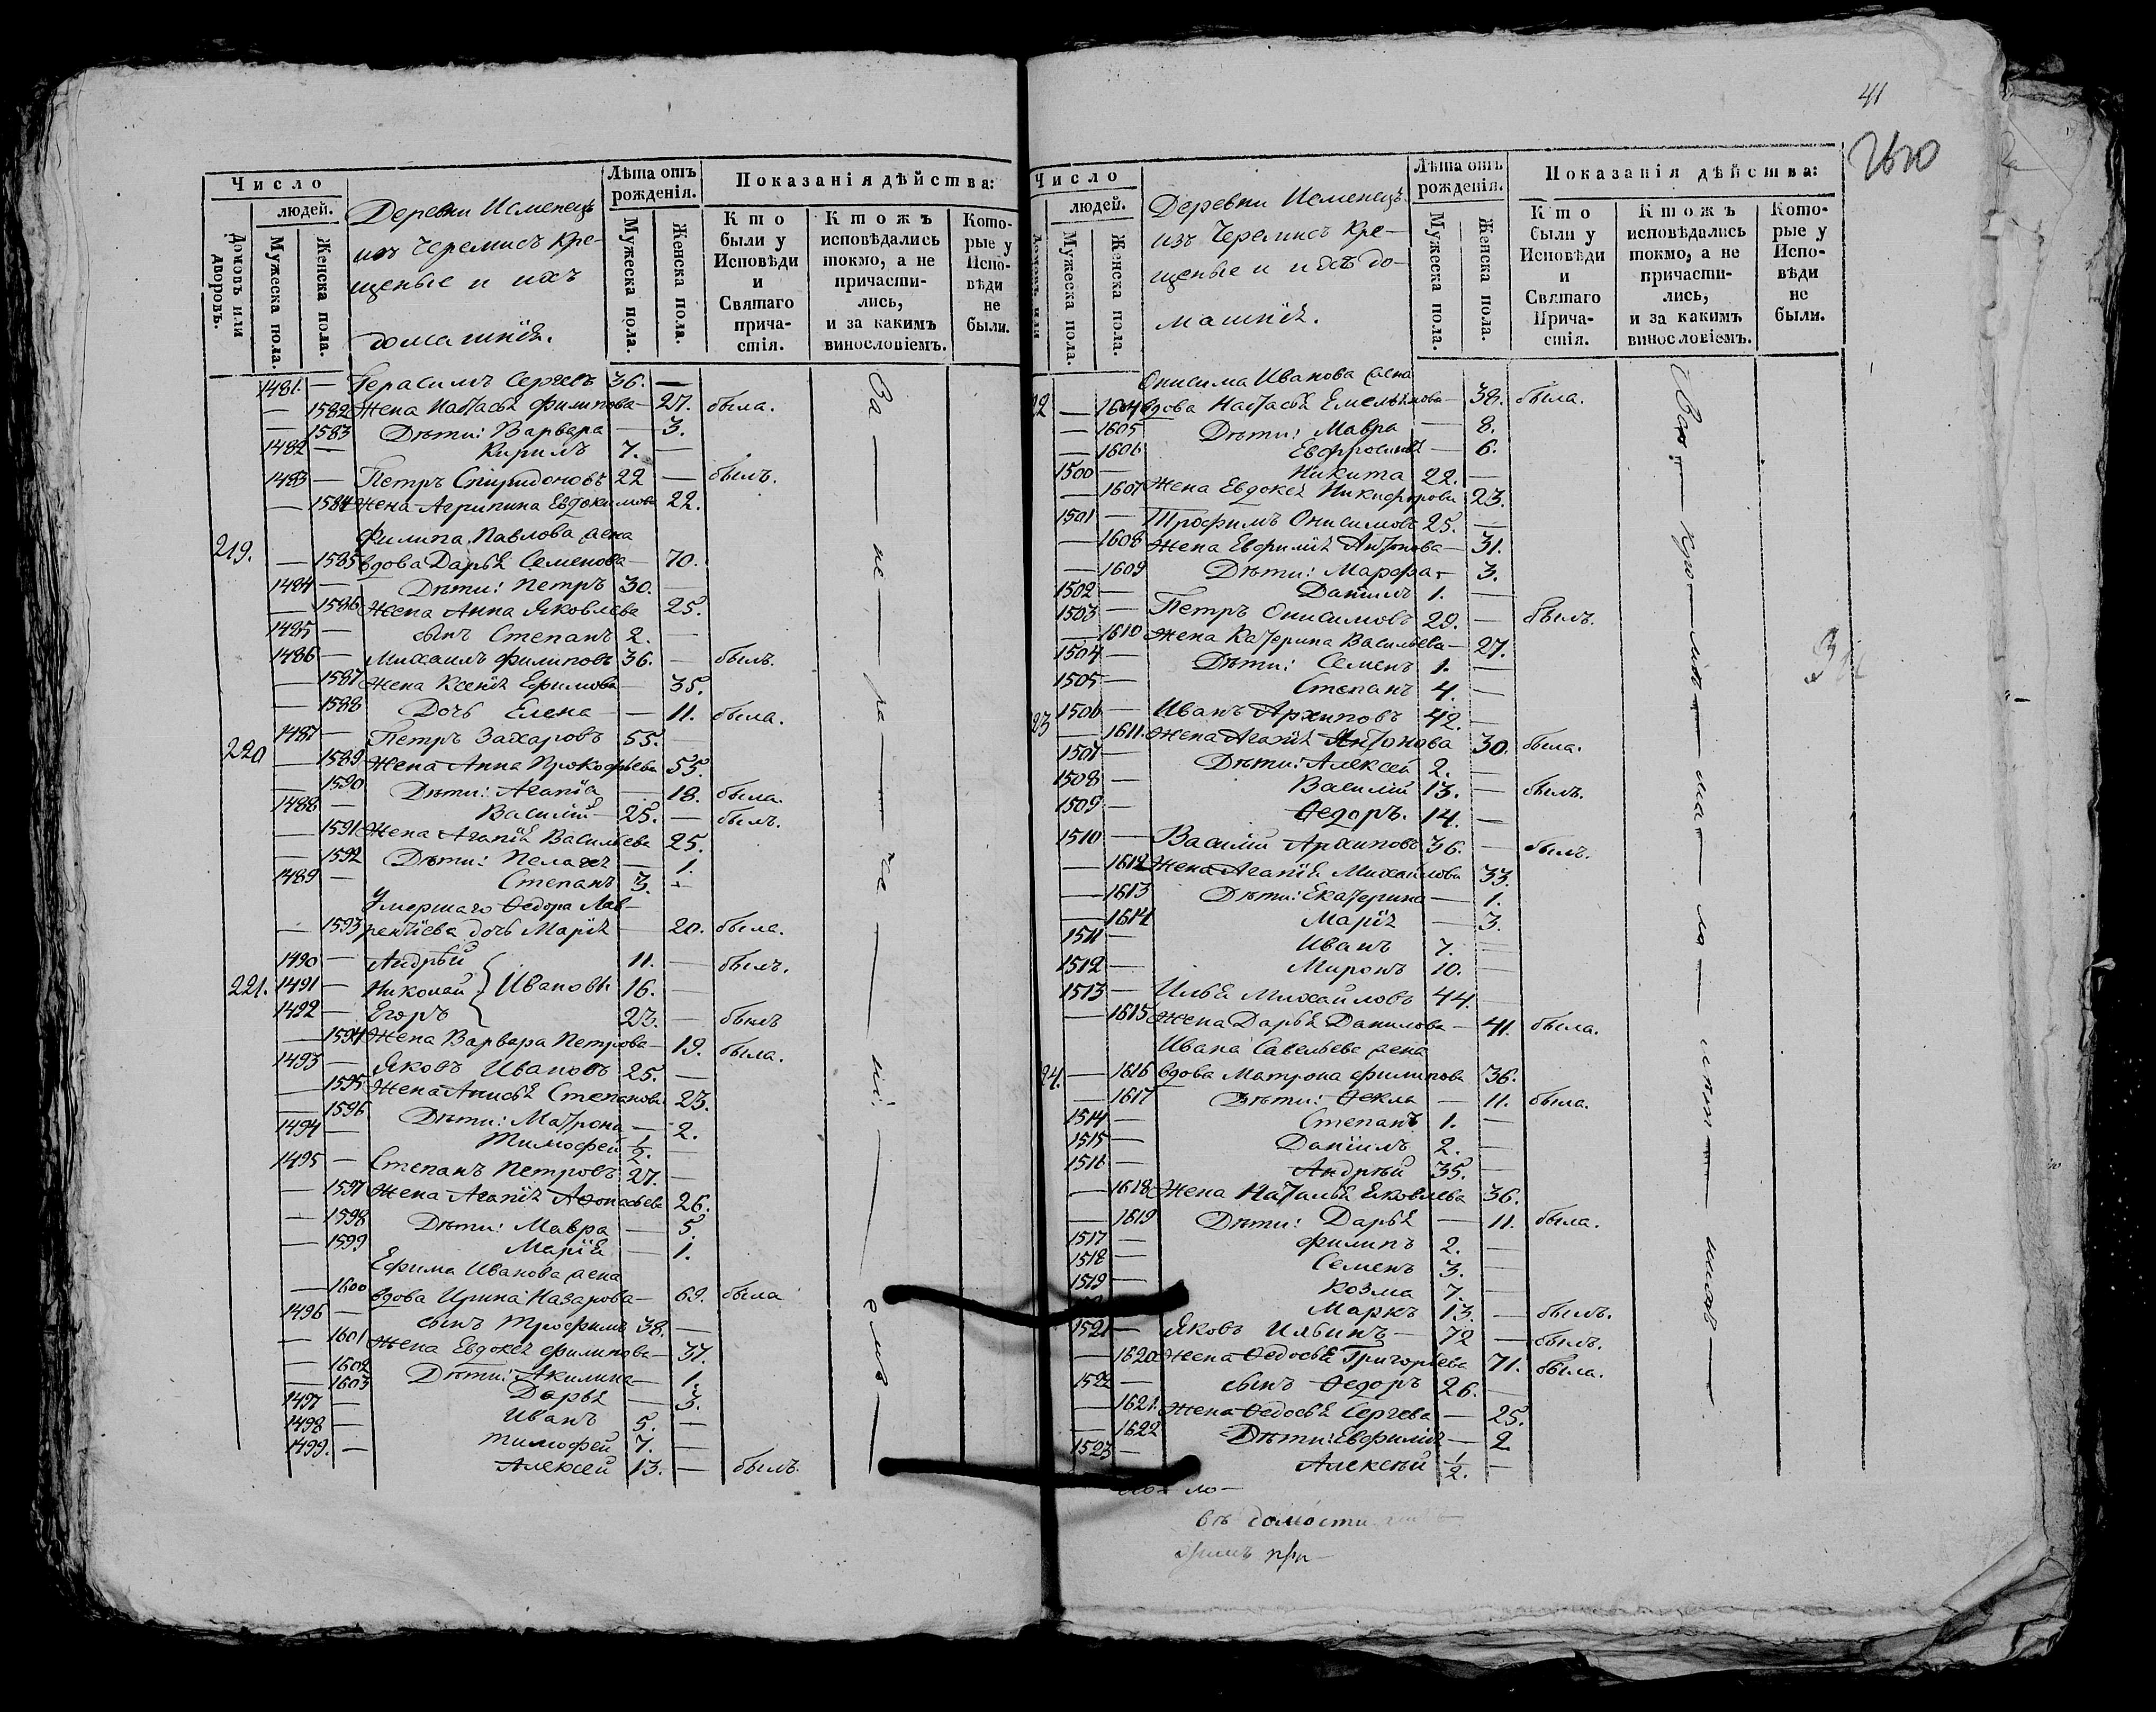 Число
людей.
Домовъ или дворовъ.
Мужеска пола.
Женска пола.
Деревни Исменецъ
изъ Черемисъ Кре-
щеные и ихъ
домашнїѣ.
Лѣта отъ рожденія.
Мужеска пола.
Женска пола.
Показанія дѣйства:
Кто были у Исповѣди и Святаго причастія.
Ктожъ исповѣдались токмо, а не причастились, и за какимъ винословіемъ.
Которые у Исповѣди не были.
1481. — Герасимъ Сергеевъ 36. —
— 1582 Жена Настасья Филипова — 27. была.
— 1583 Дѣти: Варвара — 3.
1482 — Кирилъ 7. —
1483 — Петръ Спиридоновъ 22 — былъ.
— 1584 Жена Агрипина Евдокимова 22.
Филипа Павлова жена
219. — 1585 вдова Дарья Семенова — 70.
1484 — Дѣти: Петръ 30. —
— 1586 Жена Анна Яковлева 25.
1485 — сынъ Степанъ 2. —
1486 — Михаилъ Филиповъ 36. — былъ.
— 1587 Жена Ксенія Ефимова — 35.
— 1588 Дочь Елена — 11. была.
220 1487 — Петръ Захаровъ 55. —
— 1589 Жена Анна Прокофьева 55.
— 1590 Дѣти: Агапїа — 18. была.
1488 — Василій 25. — былъ.
— 1591 Жена Агапія Васильева 25.
— 1592 Дѣти: Пелагея — 1.
1489 — Степанъ 3. —
Умершаго Ѳедора Лав-
— 1593 рентїева дочь Марія — 20. была.
1490 — Андрей 11. — былъ.
221. 1491 — Николай } Ивановы 16. —
1492 — Егоръ 23. — былъ
— 1594 Жена Варвара Петрова — 19. была.
1493 — Яковъ Ивановъ 25. —
— 1595 Жена Анисья Степанова 23.
— 1596 Дѣти: Матрона — 2.
1494 — Тимофей ½. —
1495 — Степанъ Петровъ 27. —
— 1597 Жена Агапія Афонасьева 26.
— 1598 Дѣти: Мавра — 5.
— 1599 Марія — 1.
Ефима Иванова жена
— 1600 вдова Ирина Назарова — 69. была
1496 — сынъ Трофимъ 38. —
— 1601 Жена Евдокея Филипова — 37.
— 1602 Дѣти: Акилина — 1.
— 1603 Дарья — 3.
1497 — Иванъ 5. —
1498 — Тимофей 7. —
1499. — Алексей 13. — былъ.
За — не —
41
2610
Число
людей.
Мужеска пола.
Женска пола.
Деревни Исменецъ
изъ Черемисъ Кре-
щеные и ихъ до-
машнїѣ.
Лѣта отъ рожденія.
Мужеска пола.
Женска пола.
Показанія дѣйства:
Кто были у Исповѣди и Святаго Причастія.
Ктожъ исповѣдались токмо, а не причастились, и за какимъ винословіемъ.
Которые у Исповѣди не были.
Онисима Иванова жена
22 — 1604 вдова Настасья Емельянова — 38. была.
— 1605 Дѣти: Мавра — 8.
— 1606 Евфросинья — 6.
1500 — Никита 22. —
— 1607 Жена Евдокея Никифорова 23.
1501 — Трофимъ Онисимовъ 25. —
— 1608 Жена Евфимія Антонова — 31.
— 1609 Дѣти: Марфа — 3.
1502 — Данилъ 1. —
1503 — Петръ Онисимовъ 29. — былъ.
— 1610 Жена Катерина Васильева — 27.
1504 — Дѣти: Семенъ 1. —
1505 — Степанъ 4. —
23 1506 — Иванъ Архиповъ 42. —
— 1611. Жена Агапія Антонова 30. была.
1507 — Дѣти: Алексей 2. —
1508 — Василій 13. — былъ.
1509 — Ѳедоръ. 14. —
1510 — Василій Архиповъ 36. — былъ.
— 1612 Жена Агапія Михайлова 33.
— 1613 Дѣти: Екатерина — 1.
— 1614 Марія — 3.
1511 — Иванъ 7. —
1512 — Миронъ 10. —
1513 — Илья Михайловъ 44. —
— 1615 Жена Дарья Данилова — 41. была.
Ивана Савельева жена
24. — 1616 вдова Матрона Филипова 36.
— 1617 Дѣти: Ѳекла — 11. была.
1514 — Степанъ 1. —
1515 — Данїилъ 2. —
1516 — Андрѣй 35. —
— 1618 Жена Наталья Яковлева 36.
— 1619 Дѣти: Дарья — 11. была.
1517 — Филипъ 2. —
1518 — Семенъ 3. —
1519 — Козма 7. —
Маркъ 13. — былъ.
1521 — Яковъ Ильинъ — 72 — былъ.
— 1620 Жена Ѳедосья Григорьева 71. была.
1522 — сынъ Ѳедоръ 26. —
— 1621. Жена Ѳедосья Сергева — 25.
— 1622 Дѣти: Евфимія — 2.
1523 — Алексѣй ½. —